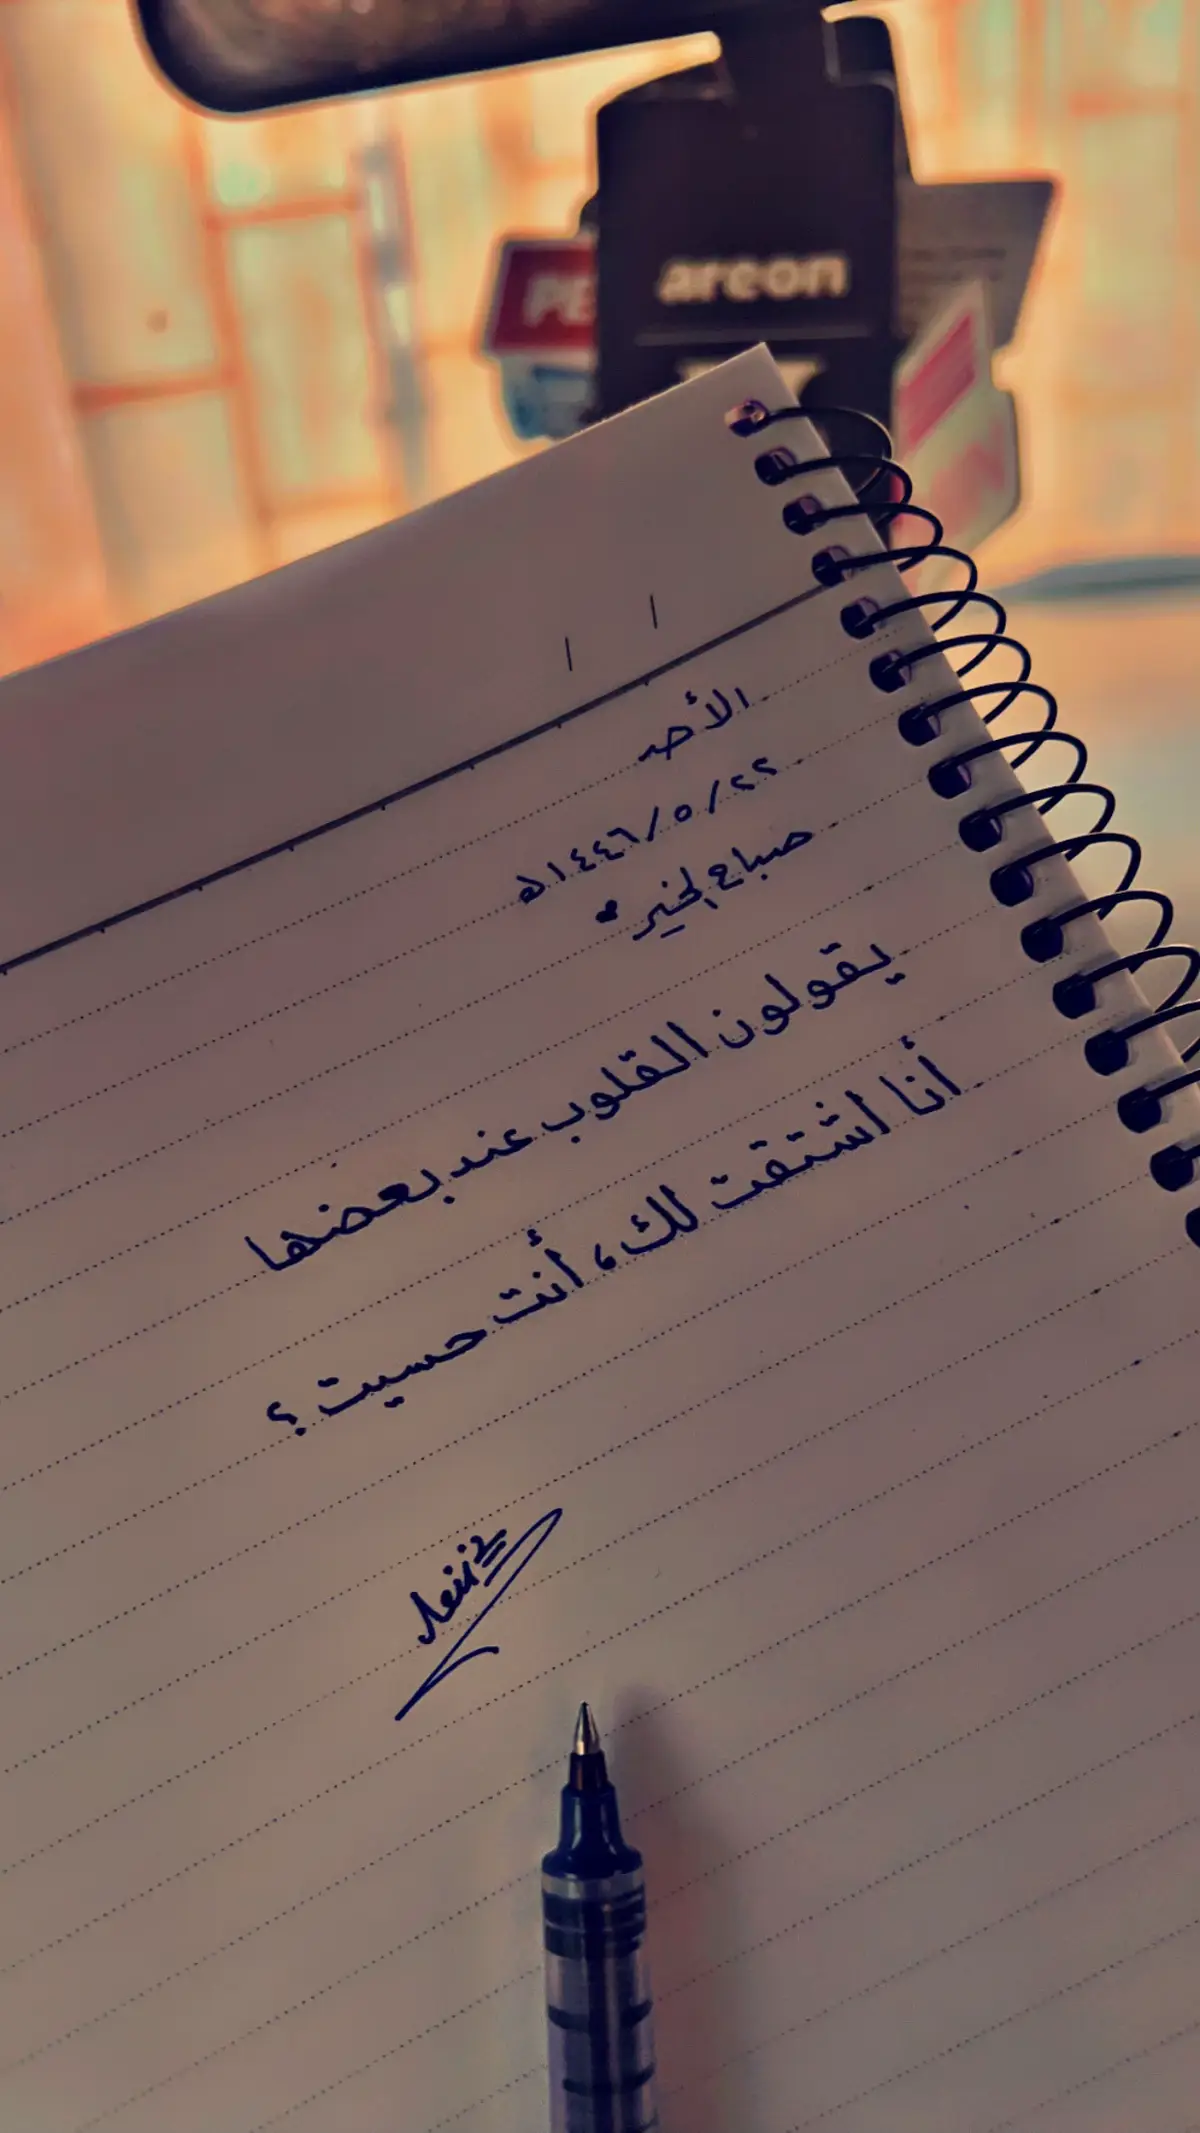 areon
PE
الأحد
٢٢/٥/١٤٤٦هـ
صباح الخير
يقولون القلوب عند بعضها
أنا اشتقت لك، أنت حسيت؟